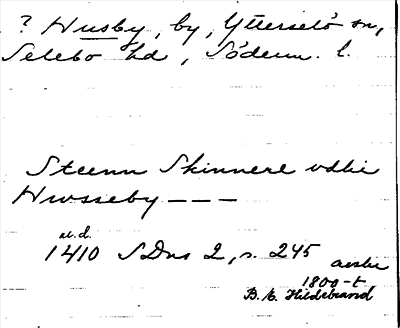 ? Husby, by, Ytterselö sn,
Selebo hd, Söderm. l.
Steenn Skinnere vdhi
Hwsseby - - -
u.d.
1410 SDns 2, s. 245 avskr
1800-t
B. E. Hildebrand